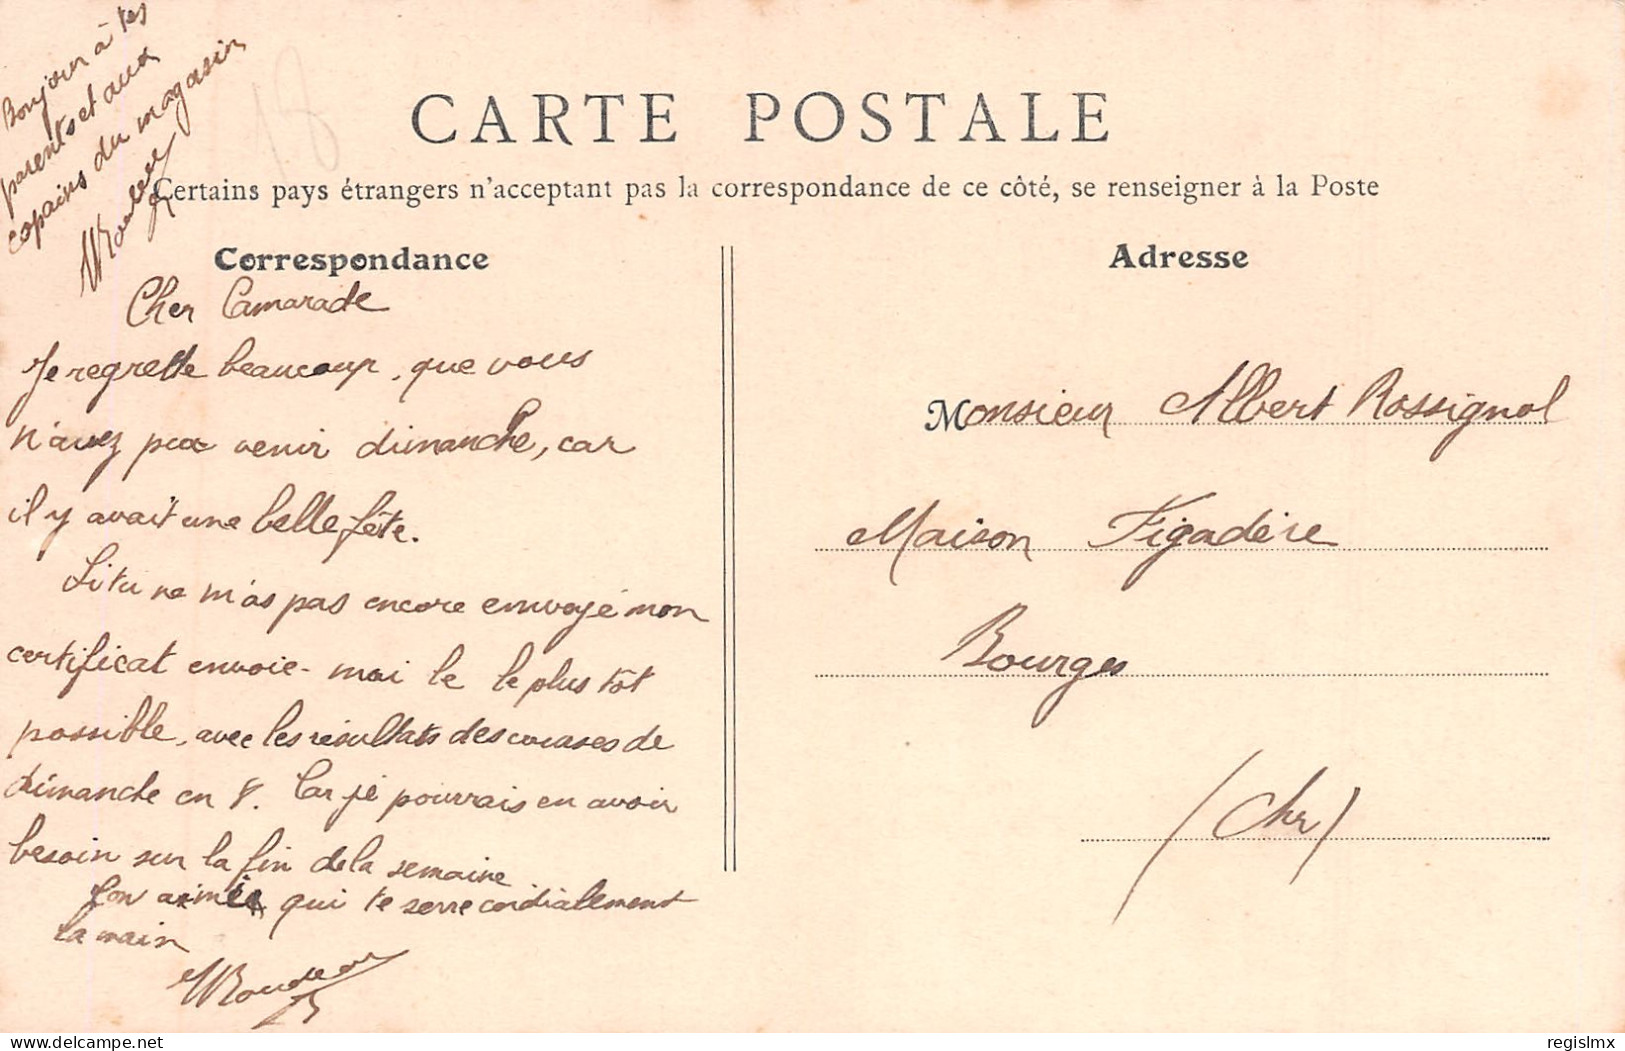 Bonjour à tes
parents et aux
copains du magasin
CARTE POSTALE
Certains pays étrangers n'acceptant pas la correspondance de ce côté, se renseigner à la Poste
Correspondance
Cher Camarade
Je regrette beaucoup, que vous
n'avez pas venir dimanche, car
il y avait une belle fête.
Si tu ne m'as pas encore envoyé mon
certificat envoie-moi le le plus tôt
possible, avec les résultats des courses de
dimanche en 8. Car je pourrais en avoir
besoin sur la fin de la semaine
Ton qui te serre cordialement
la main
Adresse
Monsieur Albert Rossignol
Maison Figadère
Bourges
(Cher)
delcampe.net
regislmx